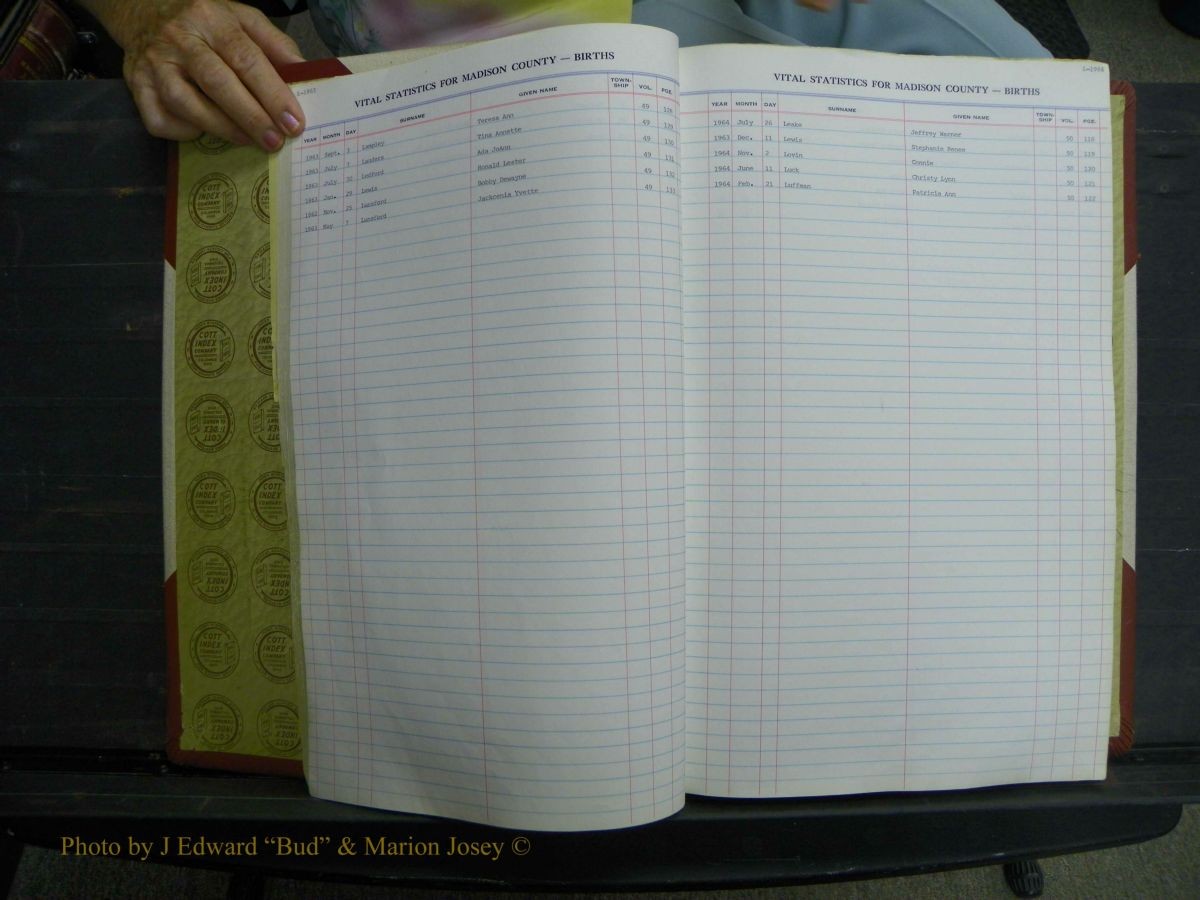 L-1963
VITAL STATISTICS FOR MADISON COUNTY — BIRTHS
YEAR MONTH DAY SURNAME GIVEN NAME TOWN-SHIP VOL. PGE.
1963 Sept. 3 Langley Teresa Ann 49 128
1963 July 7 Leaders Tina Annette 49 129
1963 July Ledford Ada JoAnn 49 130
1963 Jan. 29 Lewis Ronald Lester 49 131
1962 Nov. 25 Lunsford Bobby Dewayne 49 132
1963 May 7 Lunsford Jackcenia Yvette 49 133
L-1964
VITAL STATISTICS FOR MADISON COUNTY — BIRTHS
YEAR MONTH DAY SURNAME GIVEN NAME TOWN-SHIP VOL. PGE.
1964 July 26 Leake Jeffrey Warner 50 118
1963 Dec. 11 Lewis Stephanie Renee 50 119
1964 Nov. 2 Lovin Connie 50 120
1964 June 11 Luck Christy Lynn 50 121
1964 Feb. 21 Luffman Patricia Ann 50 122
COTT INDEX COMPANY
Photo by J Edward “Bud” & Marion Josey ©